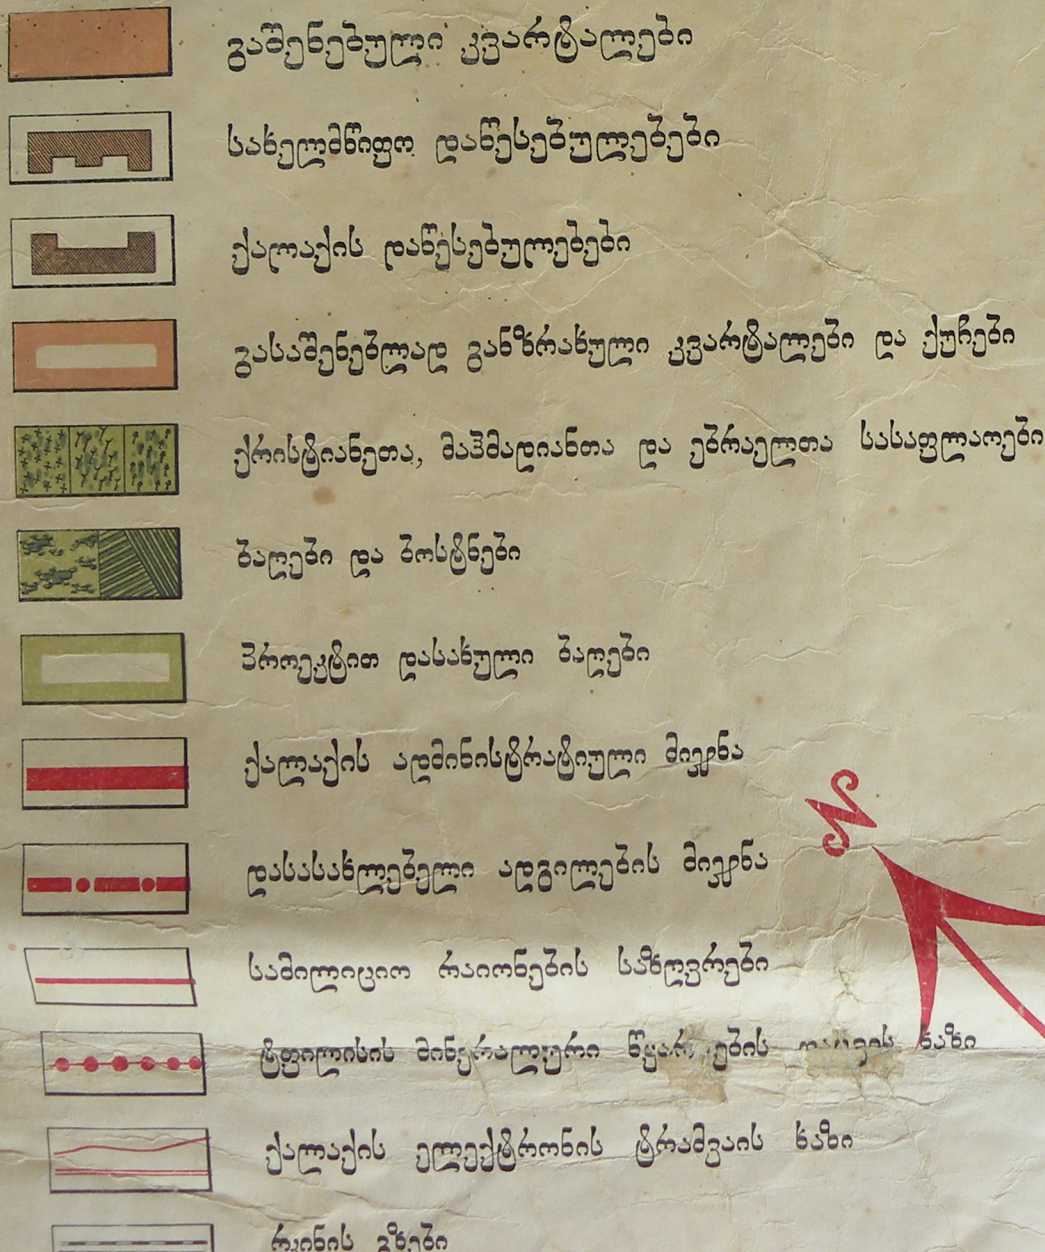 გაშენებული კვარტალები
სახელმწიფო დაწესებულებები
ქალაქის დაწესებულებები
გასაშენებლად განზრახული კვარტალები და ქუჩები
ქრისტიანეთა, მაჰმადიანთა და ებრაელთა სასაფლაოები
ბაღები და ბოსტნები
პროექტით დასახული ბაღები
ქალაქის ადმინისტრატიული მიჯნა
დასასახლებელი ადგილების მიჯნა
სამილიციო რაიონების საზღვრები
N
ტფილისის მინერალური ხაზი
ქალაქის ელექტრონის ტრამვაის ხაზი
რკინის გზები